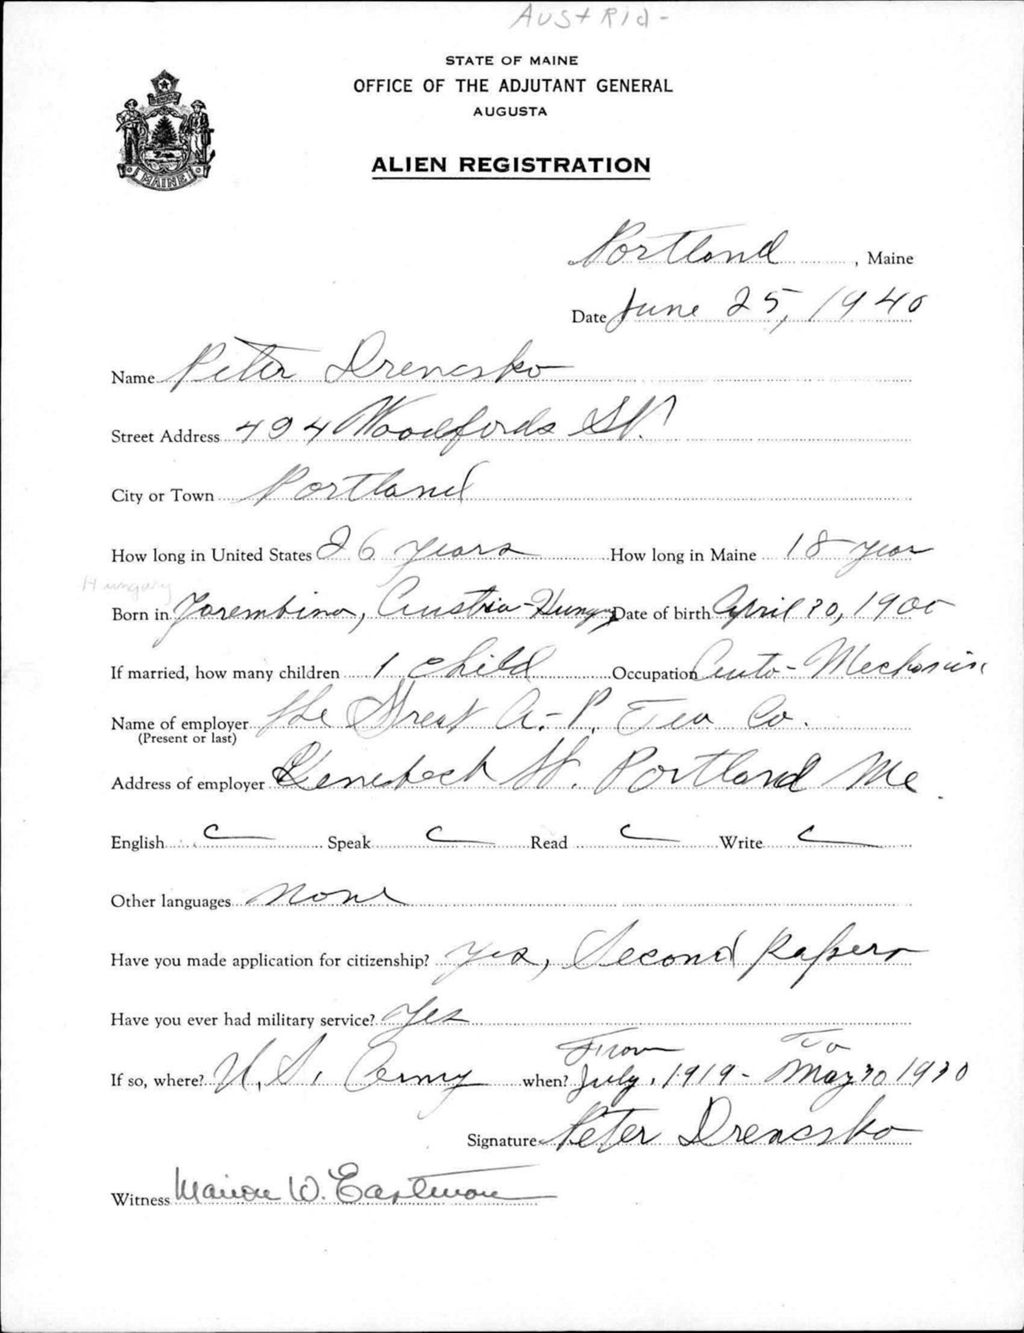 Austria-
STATE OF MAINE
OFFICE OF THE ADJUTANT GENERAL
AUGUSTA
ALIEN REGISTRATION
MAINE
Portland, Maine
Date June 25, 1940
Name Peter Drencsko
Street Address 494 Woodfords St.
City or Town Portland
How long in United States 26 years How long in Maine 18 year
Hungary
Born in Austria-Hungy Date of birth April 30, 1900
If married, how many children 1 child Occupation Auto-Mechanic
Name of employer the Great A.-P. Tea Co.
(Present or last)
Address of employer St. Portland Me.
English Speak Read Write
Other languages None
Have you made application for citizenship? Yes, Second Papers
Have you ever had military service? Yes
From To
If so, where? U.S. Army when? July, 1919 - May 30 1930
Signature Peter Drencsko
Witness Marion W. Eastman